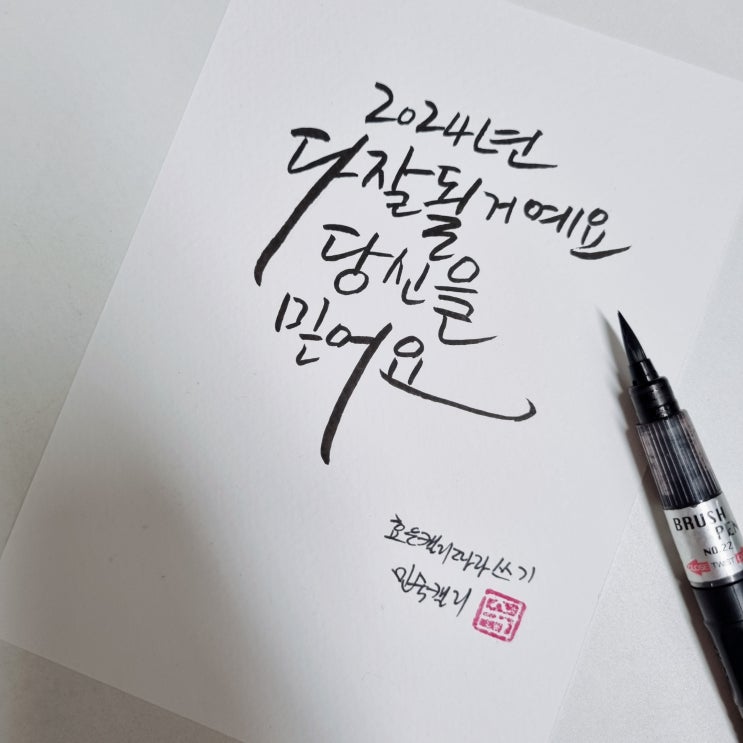 2024년
다 잘 될 거예요
당신을
믿어요
효은캘리 따라쓰기
민숙캘리
BRUSH
PEN
NO.22
CLOSE TWIST